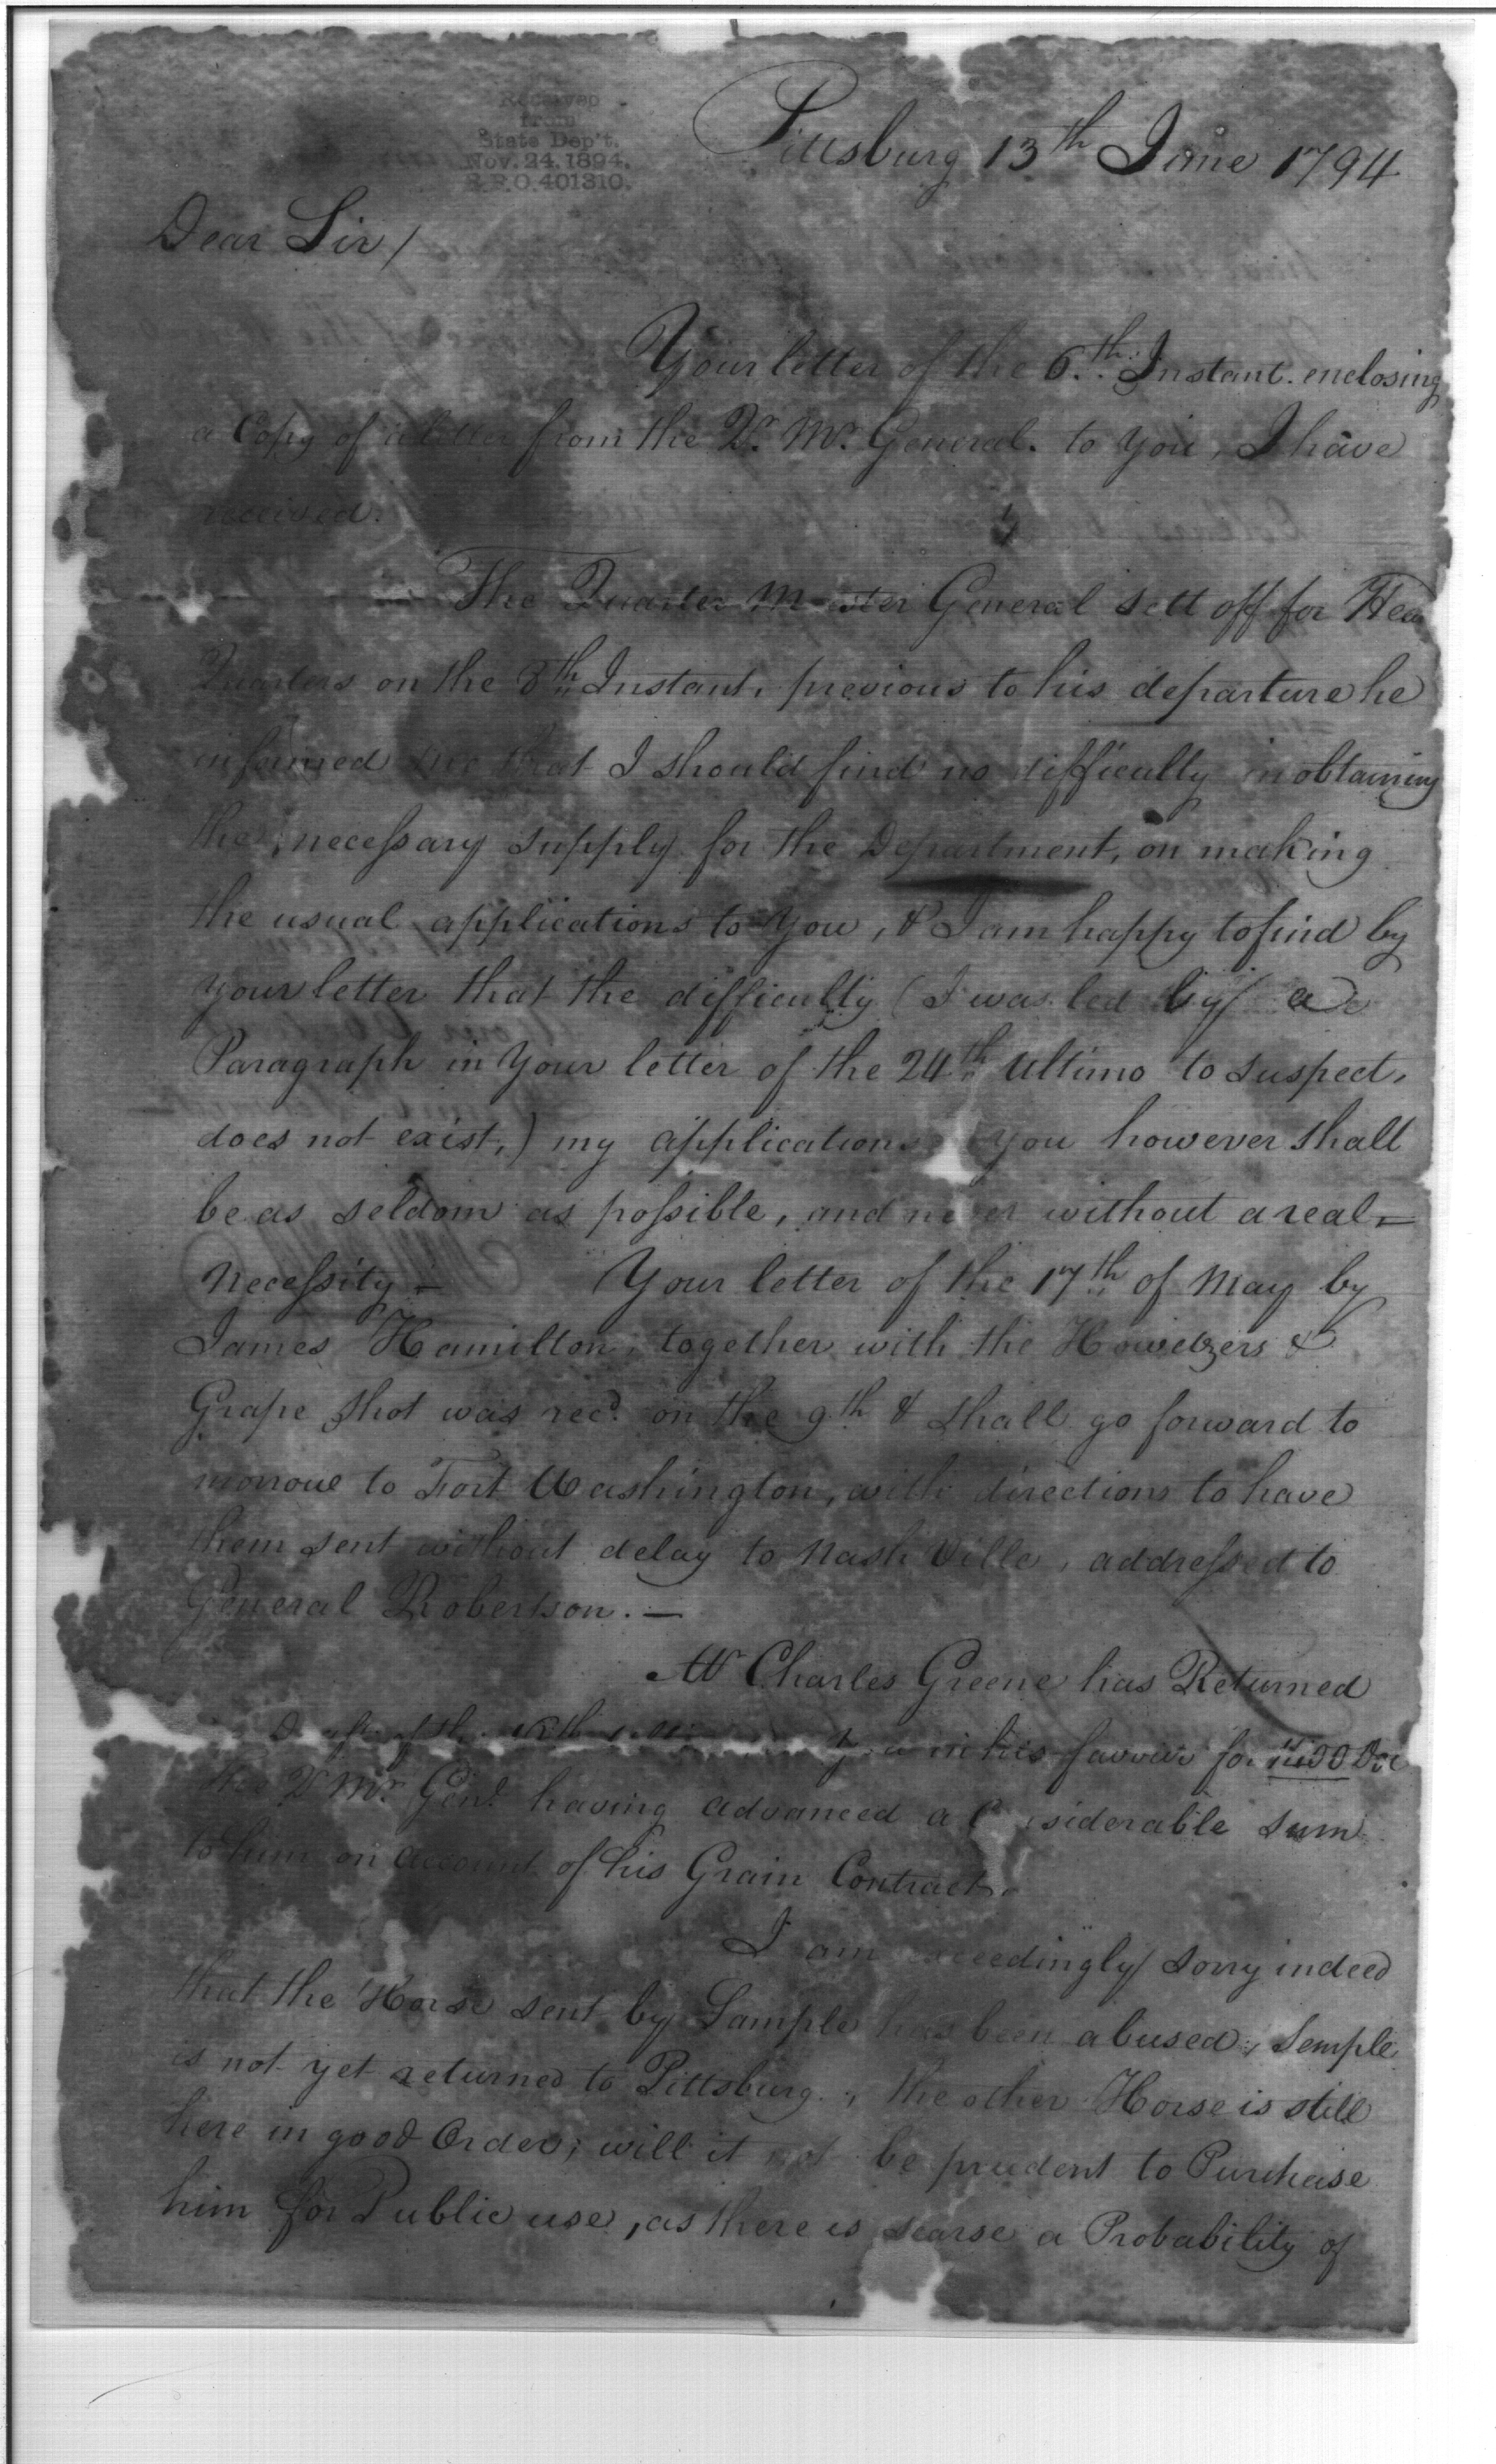 Received
from
State Dep't.
Nov. 24. 1894.
R.P.O. 401310.
Pittsburg 13th June 1794
Dear Sir/
Your letter of the 6th Instant. enclosing
a Copy of a letter from the Qr. Mr. General. to you, I have
received.
The Quarter Master General sett off for Hea
Quarters on the 8th Instant, previous to his departure he
informed me that I should find no difficulty in obtaining
the necessary supply for the Department, on making
the usual applications to you, & I am happy to find by
your letter that the difficulty (I was led by a
Paragraph in your letter of the 24th Ultimo to suspect,
does not exist,) my applications you however shall
be as seldom as possible, and never without a real =
Necessity – Your letter of the 17th of May by
James Hamilton, together with the Howetzers &
Grape shot was recd. on the 9th & shall go forward to
morrow to Fort Washington, with directions to have
them sent without delay to Nash Ville, addressed to
General Robertson. —
Mr Charles Greene has Returned
in his favour for
the Qr Mr Genl. having advanced a C nsiderable sum
to him on account of his Grain Contract.
I am exceedingly sorry indeed
that the Horse sent by Sample has been abused, Semple
is not yet returned to Pittsburg, the other Horse is still
here in good Order, will it not be prudent to Purchase
him for Public use, as there is scarse a Probability of